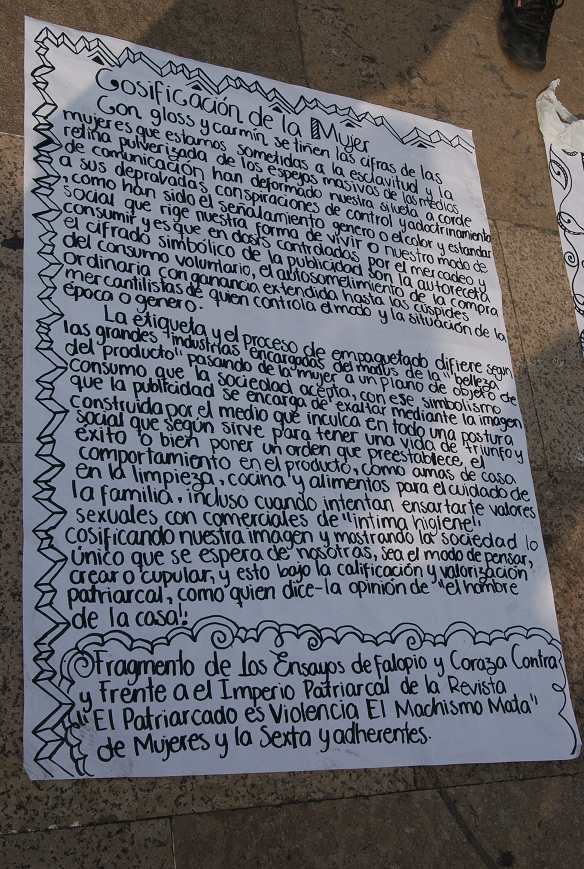 Cosificación de la Mujer
Con gloss y carmín, se tiñen las cifras de las
mujeres que estamos sometidas a la esclavitud y la
retina pulverizada de los espejos masivos de las medios
de comunicación han deformado nuestra silueta, acorde
a sus depravadas conspiraciones de control y adoctrinamiento
, como han sido el señalamiento genero o el color y estandar
social que rige nuestra forma de vivir o nuestro modo de
consumir y es que en dosis controladas por el mercadeo y
el cifrado simbólico de la publicidad son la autoreceta
del consumo voluntario, el autosometimiento de la compra
ordinaria con ganancia extendida hasta las cúspides
mercantilistas de quien controla el modo y la situación de la
época o genero.
La etiqueta y el proceso de empaquetado difiere según
las grandes "industrias encargadas del modus de la "belleza
del producto" pasando de la mujer a un plano de objeto de
consumo que la sociedad acepta, con ese simbolismo
que la publicidad se encarga de exaltar mediante la imagen
construida por el medio que inculca en todo una postura
social que según sirve para tener una vida de triunfo y
exito o bien poner un orden que preestablece, el
comportamiento en el producto, como amas de casa
en la limpieza, cocina y alimentos para el cuidado de
la familia, incluso cuando intentan ensartarte valores
sexuales con comerciales de "intima higiene",
cosificando nuestra imagen y mostrando la sociedad lo
único que se espera de nosotras, sea el modo de pensar,
crear o cupular, y esto bajo la calificación y valorización
patriarcal, como quien dice-la opinión de "el hombre
de la casa!"
Fragmento de los Ensayos de Falopio y Coraza Contra
y Frente a el Imperio Patriarcal de la Revista
"El Patriarcado es Violencia El Machismo Mata"
de Mujeres y la Sexta y adherentes.